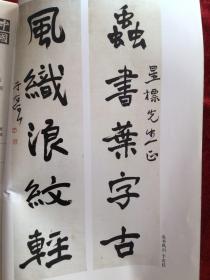 蟲書葉字古
星標先生正
風織浪紋輕
于右任
中國